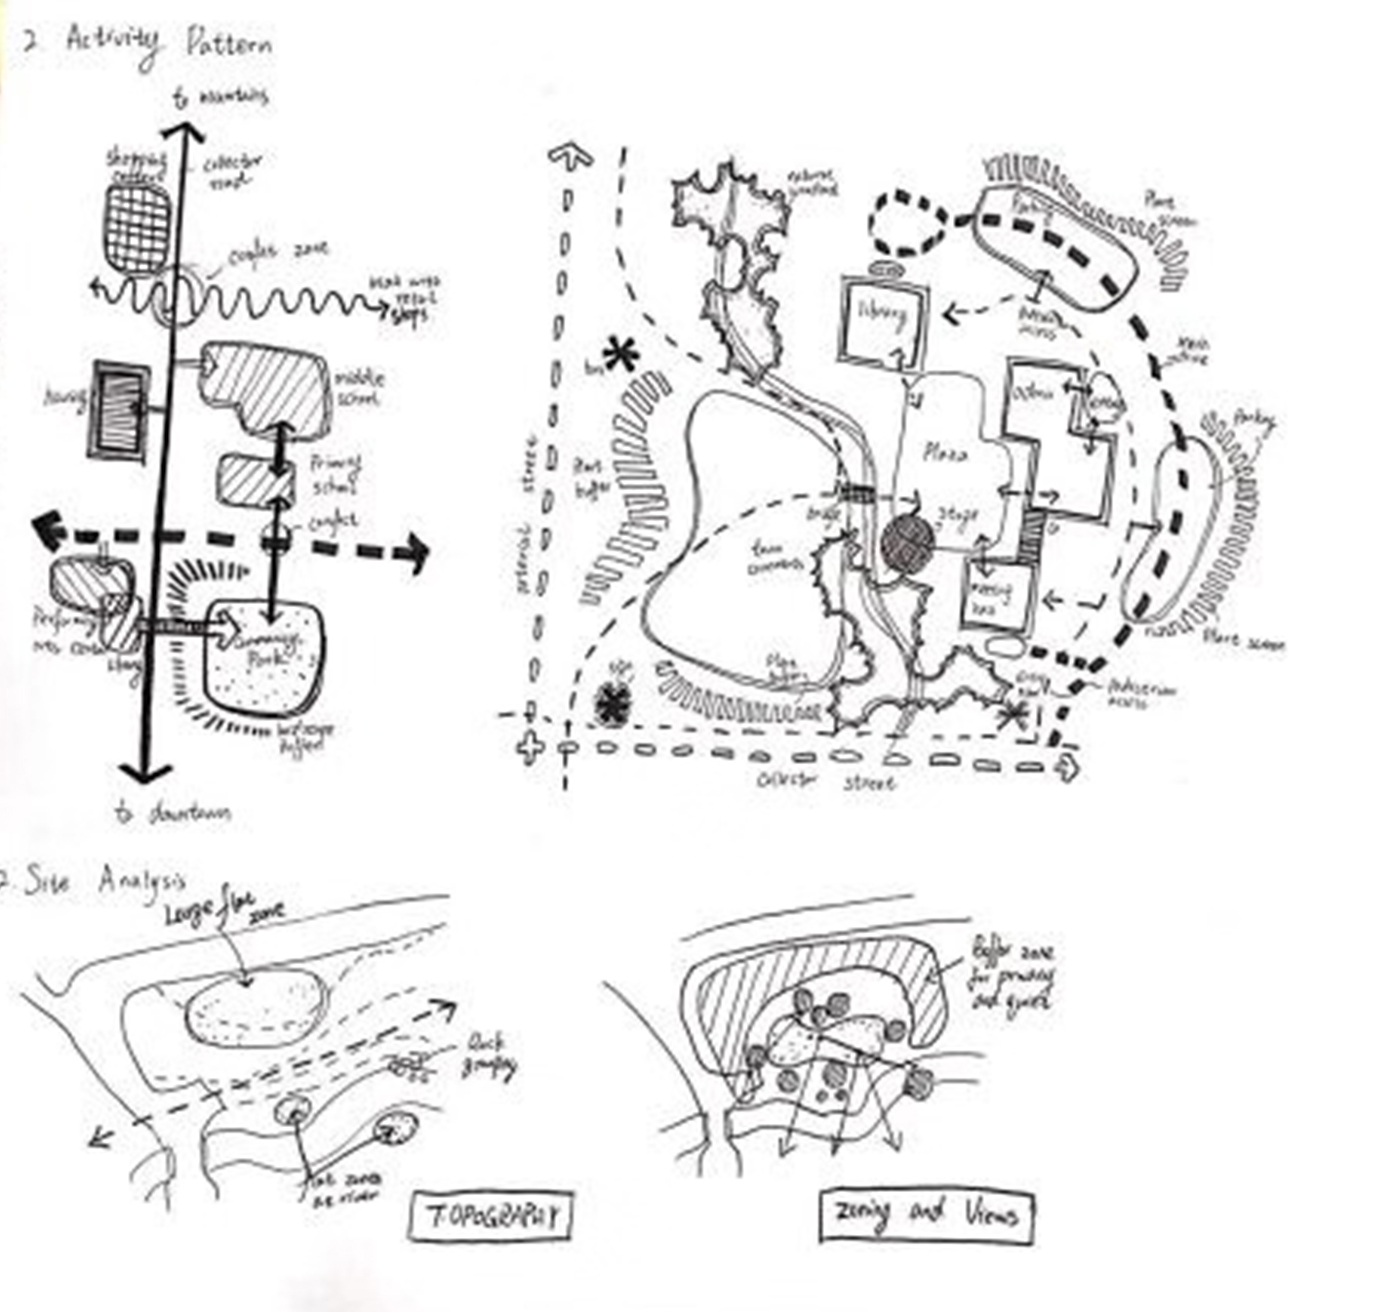 2 Activity Pattern
to mountains
shopping
center
collector
road
conflict zone
housing
middle
school
Primary
school
conflict
Performing
arts center
Community
Park
landscape
buffer
to downtown
natural
Parking
Plant
screen
library
access
Main
drive
Plaza
Parking
Plant
buffer
bridge
stage
meeting
Plant screen
sign
pedestrian
access
arterial street
collector street
2. Site Analysis
Large flat
zone
Rock
grouping
flat zones
TOPOGRAPHY
Buffer zone
for privacy
and quiet
Zoning and Views